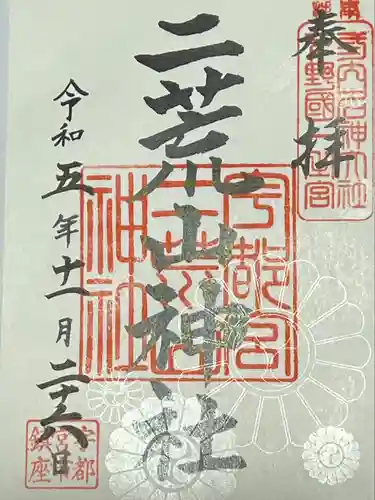 奉拝
下野國一之宮
二荒山神社
宇都宮二荒山神社
令和五年十一月二十六日
宇都宮市鎮座